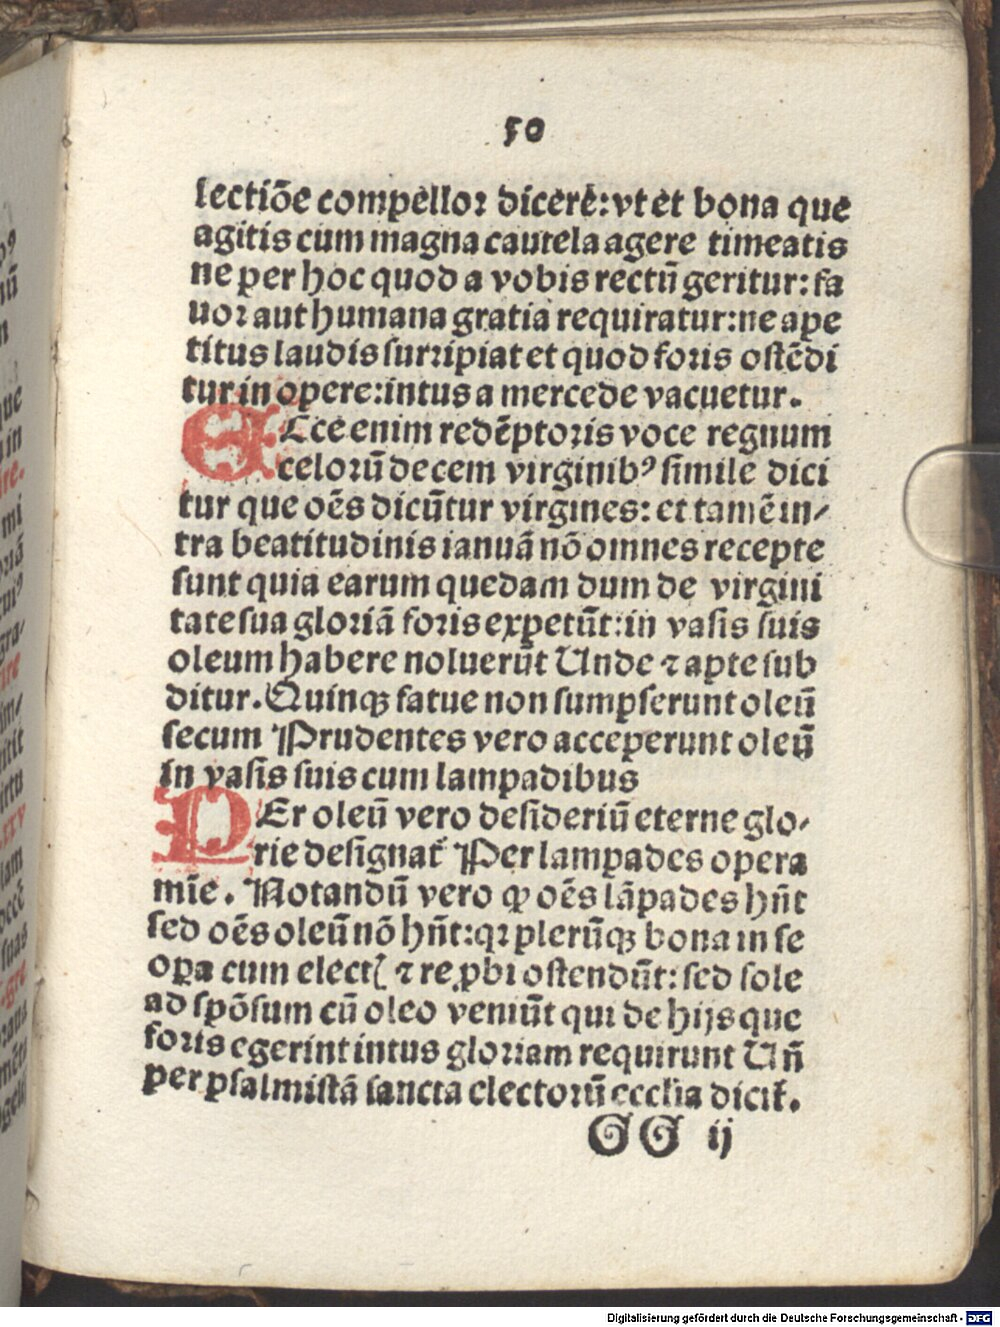 50
lectiōe compellor dicere: vt et bona que
agitis cum magna cautela agere timeatis
ne per hoc quod a vobis rectū geritur: fa
uor aut humana gratia requiratur: ne ape
titus laudis surripiat et quod foris ostēdi
tur in opere: intus a mercede vacuetur.
ECce enim redēptoris voce regnum
celorū decem virginibꝰ simile dici
tur que oēs dicūtur virgines: et tamē in⸗
tra beatitudinis ianuā nō omnes recepte
sunt quia earum quedam dum de virgini
tate sua gloriā foris expetūt: in vasis suis
oleum habere noluerūt Unde ⁊ apte sub
ditur. Quinqꝫ fatue non sumpserunt oleū
secum Prudentes vero acceperunt oleū
in vasis suis cum lampadibus
PEr oleū vero desideriū eterne glo⸗
rie designat᷑ Per lampades opera
mīe. Notandū vero ꝙ oēs lāpades hn̄t
sed oēs oleū nō hn̄t: qꝛ plerūqꝫ bona in se
oꝑa cum electꝭ ⁊ reꝓbi ostendūt: sed sole
ad spōsum cū oleo veniūt qui de hijs que
foris egerint intus gloriam requirunt Un̄
per psalmistā sancta electorū ecclia dicit᷑.
GG ij
Digitalisierung gefördert durch die Deutsche Forschungsgemeinschaft - DFG